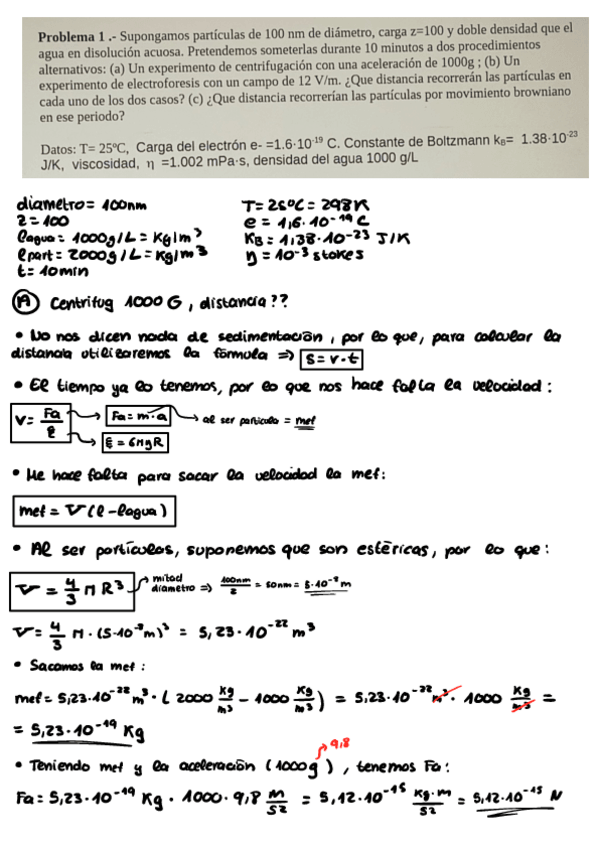 Problema 1 .- Supongamos partículas de 100 nm de diámetro, carga z=100 y doble densidad que el
agua en disolución acuosa. Pretendemos someterlas durante 10 minutos a dos procedimientos
alternativos: (a) Un experimento de centrifugación con una aceleración de 1000g ; (b) Un
experimento de electroforesis con un campo de 12 V/m. ¿Que distancia recorrerán las partículas en
cada uno de los dos casos? (c) ¿Que distancia recorrerían las partículas por movimiento browniano
en ese periodo?
Datos: T= 25ºC, Carga del electrón e- =1.6·10⁻¹⁹ C. Constante de Boltzmann k_B= 1.38·10⁻²³
J/K, viscosidad, η =1.002 mPa·s, densidad del agua 1000 g/L
diametro = 100nm
z = 100
ρagua = 1000g/L = Kg/m³
ρpart = 2000g/L = Kg/m³
t = 10min
T = 25ºC = 298K
e = 1,6·10⁻¹⁹ C
K_B = 1,38·10⁻²³ J/K
η = 10⁻³ stokes
(A) Centrifug 1000 G, distancia??
• No nos dicen nada de sedimentación, por lo que, para calcular la
distancia utilizaremos la fórmula => s = v·t
• El tiempo ya lo tenemos, por lo que nos hace falta la velocidad:
V = Fa/ξ → Fa = m·a → al ser particula = mef
→ ξ = 6πηR
• Me hace falta para sacar la velocidad la mef:
mef = V(ρ - ρagua)
• Al ser partículas, suponemos que son esféricas, por lo que:
V = 4/3 π R³ → mitad diametro => 100nm/2 = 50nm = 5·10⁻⁸ m
V = 4/3 π · (5·10⁻⁸m)³ = 5,23·10⁻²² m³
• Sacamos la mef:
mef = 5,23·10⁻²² m³ · (2000 Kg/m³ - 1000 Kg/m³) = 5,23·10⁻²² m³ · 1000 Kg/m³ =
= 5,23·10⁻¹⁹ Kg
• Teniendo mef y la aceleración (1000g → 9,8), tenemos Fa:
Fa = 5,23·10⁻¹⁹ Kg · 1000 · 9,8 m/s² = 5,12·10⁻¹⁵ Kg·m/s² = 5,12·10⁻¹⁵ N